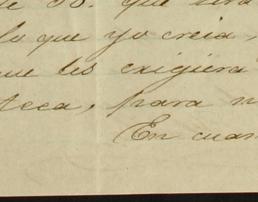 de 50. que será
lo que yo creia,
que les exigiera
teca, para n
En cuan